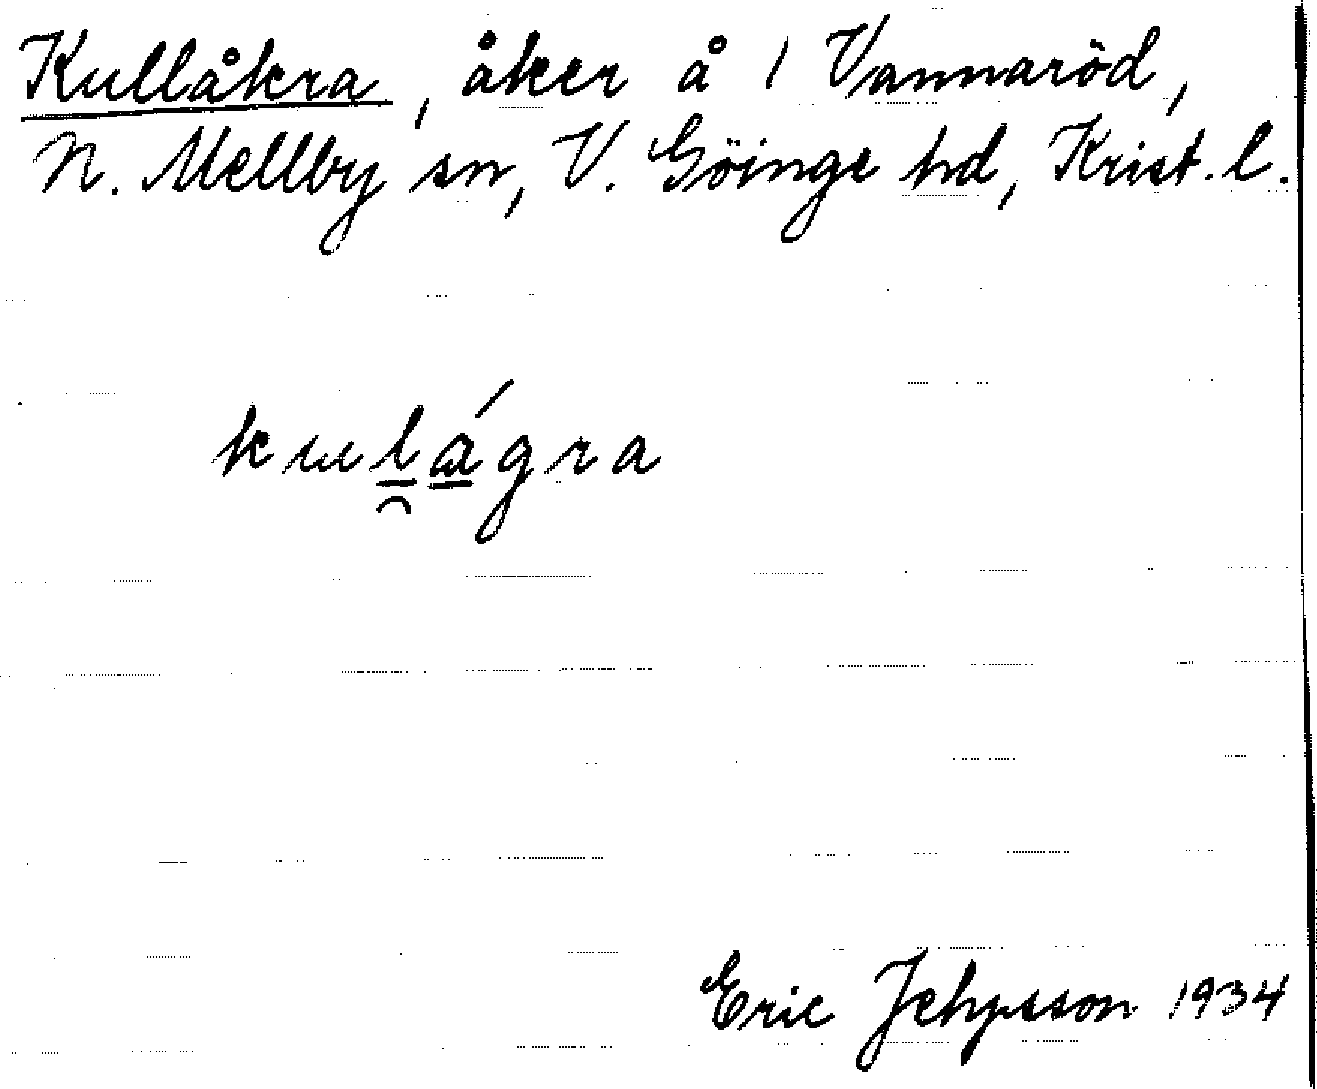 Kullåkra, åker å 1 Vannaröd,
N. Mellby sn, V. Göinge hd, Krist. l.
kulágra
Eric 1934